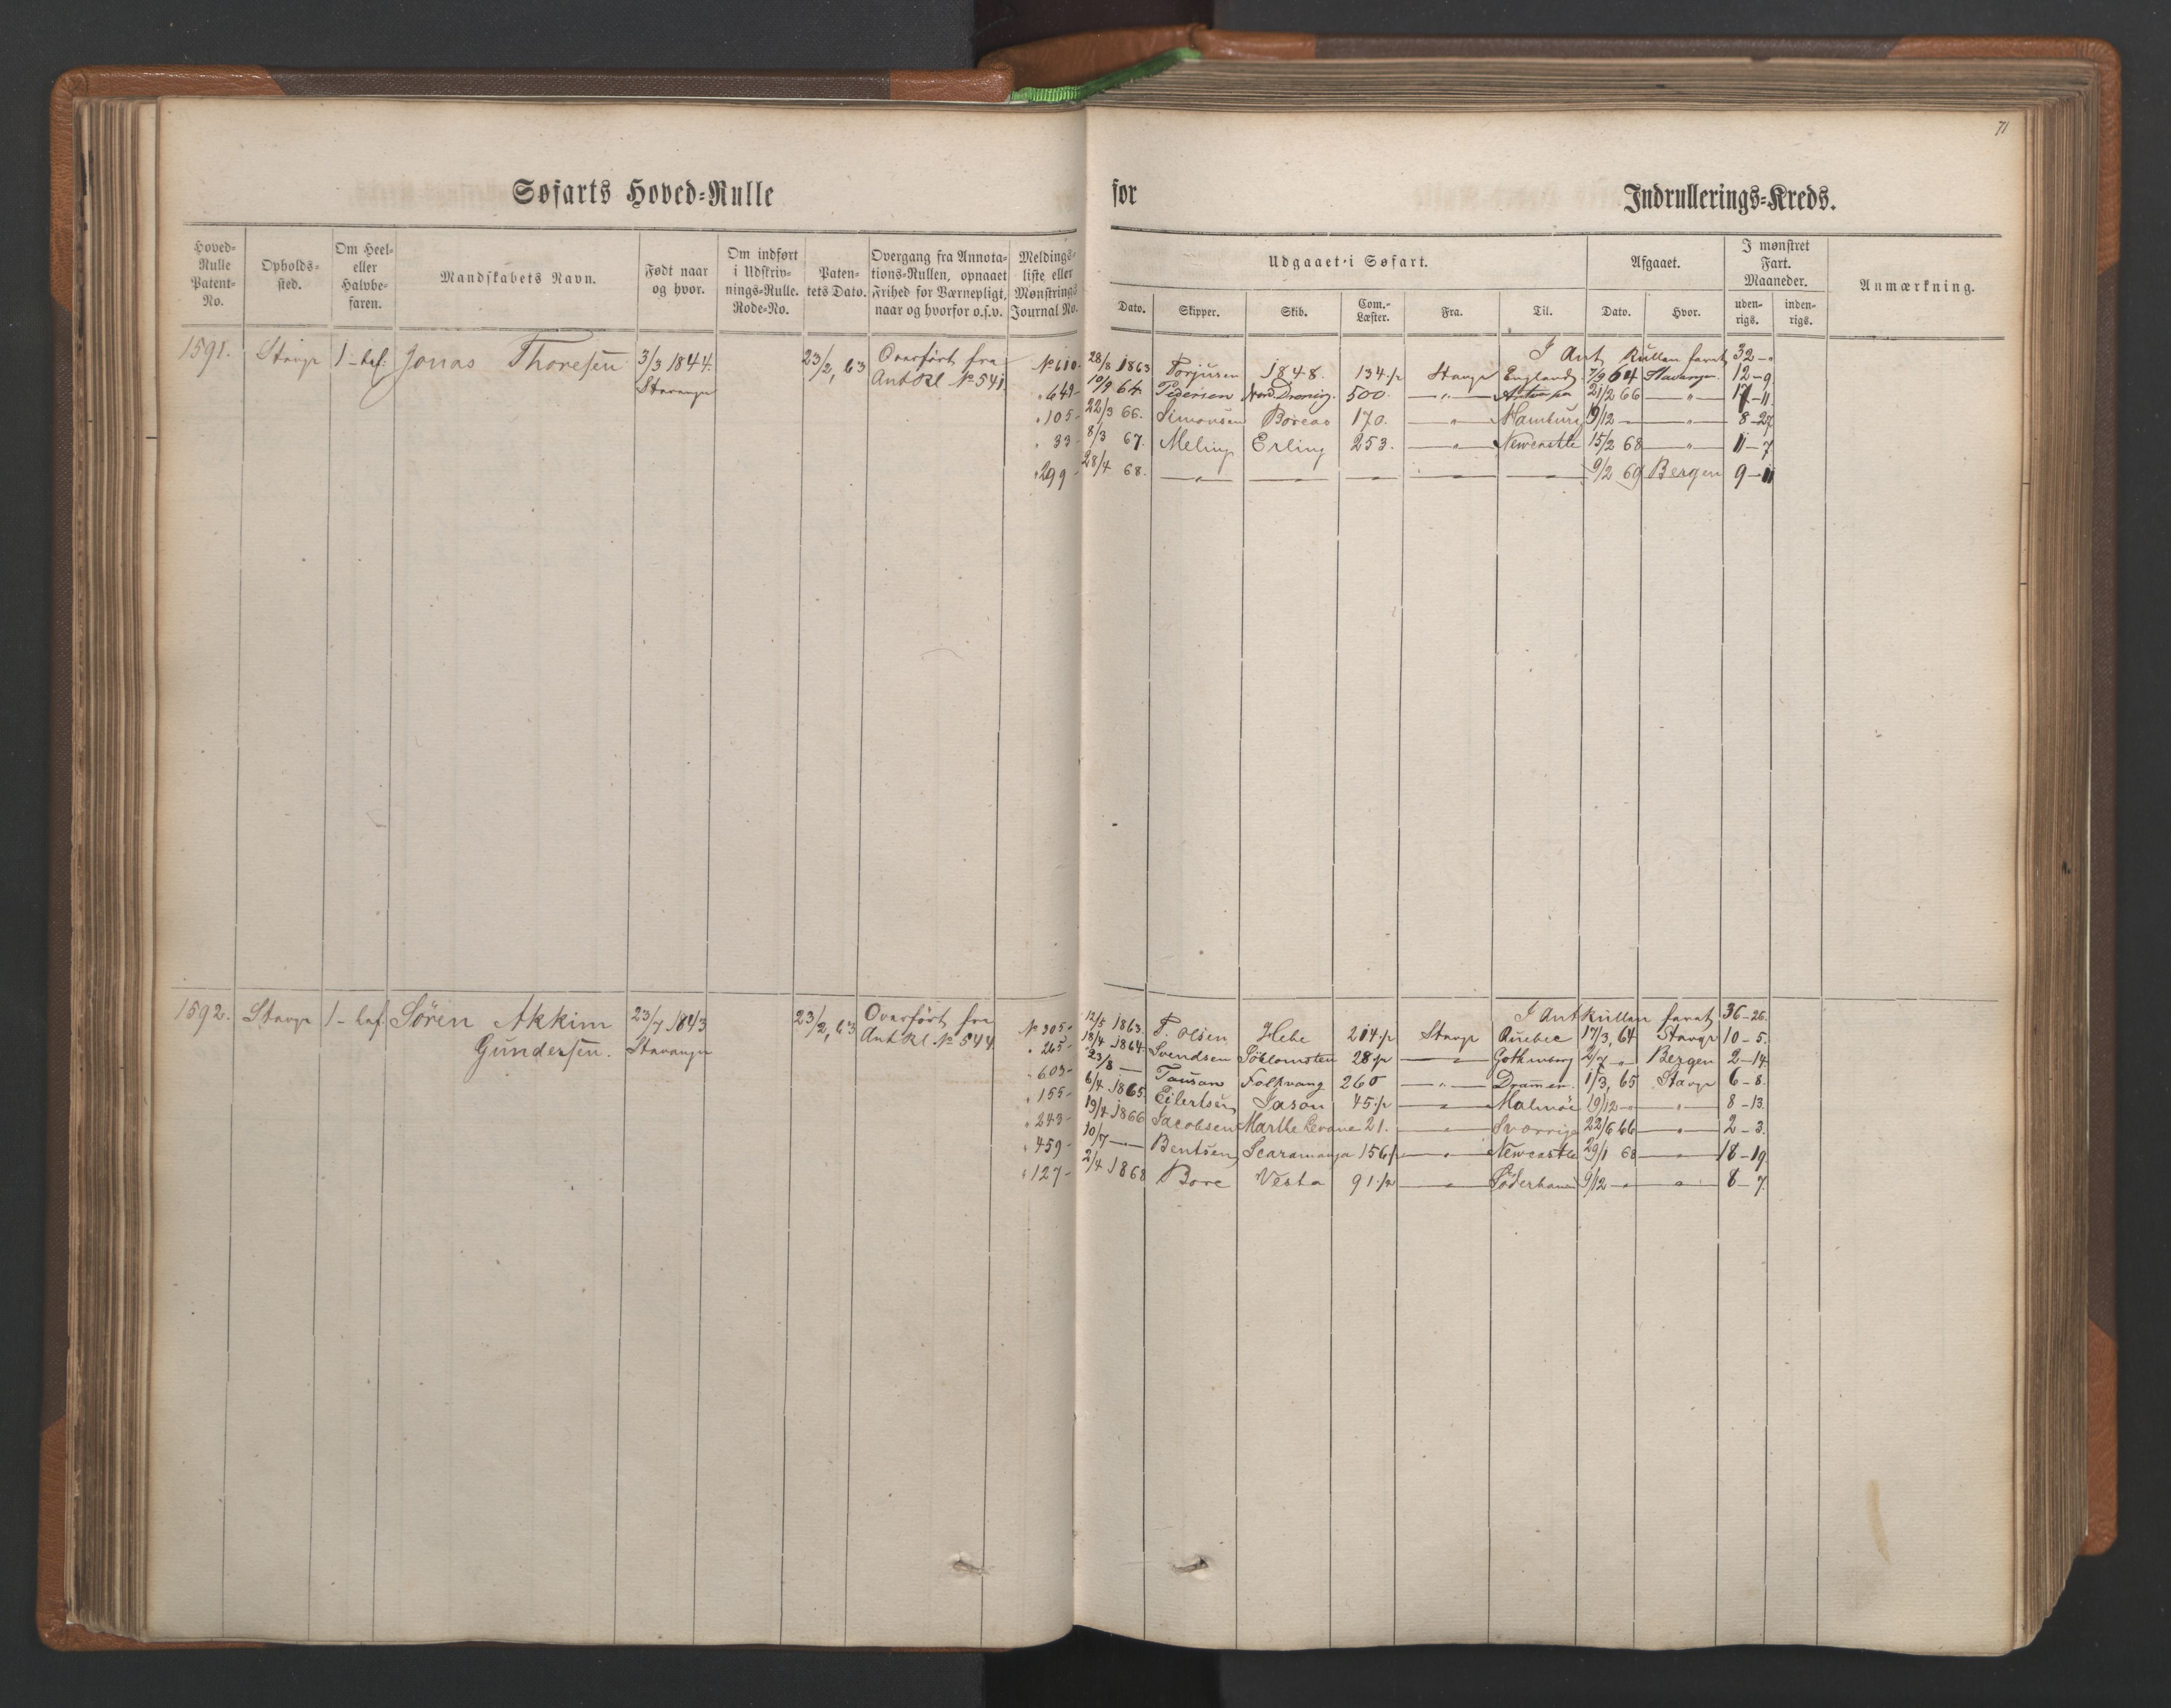 71
Søfarts Hoved-Rulle for Indrullerings-Kreds.
Hoved-Rulle Patent-No. Opholds-sted. Om Heel- eller Halvbe-faren. Mandskabets Navn. Født naar og hvor. Om indført i Udskriv-nings-Rulle. Rode-No. Paten-tets Dato. Overgang fra Annota-tions-Rullen, opnaaet Frihed for Værnepligt, naar og hvorfor o.s.v. Meldings-liste eller Mønstrings Journal No. Udgaaet i Søfart. Afgaaet. I mønstret Fart. Maaneder. Anmærkning.
Dato. Skipper. Skib. Com.-Læster. Fra. Til. Dato. Hvor. uden-rigs. inden-rigs.
I Ant Rullen faret 32 - "
1591. Stavgr 1 - bef: Jonas Thoresen 3/3 1844. 23/2, 63 Overført fra No 610. 28/8 1863 Torjusen 1848. 134 1/2 Stavgr England 7/9 64 Stavanger 12 - 9
Stavanger AntRl No 541 " 649 - 10/9 64 Pedersen 500. - " - 21/2 66 - " - 17 - 11
" 105 - 22/3 66. Simonsen Boreas 170. - " - Hamburg 19/12 - - " - 8 - 27
" 33 - 8/3 67. Meling Erling 253. - " - Newcastle 15/2 68 - " - 11 - 7
" 299 - 28/4 68. - " - 9/2 69 Bergen 9 - 11
I AntRullen faret 36 - 26.
1592. Stavgr 1 - bef. Søren Akkim 23/7 1843 23/2, 63 Overført fra No 305 - 12/5 1863. T. Olsen Hebe 214 1/2 Stavgr Quebec 17/3, 64 Stavgr 10 - 5.
Gundersen. Stavanger AntRl. No 544 " 265 - 18/4 1864. Svendsen Søblomsten 28 1/2 - " - Gothenborg 2/7 - " Bergen 2 - 14.
" 603 - 23/8 - Tausan Folkvang 260 - " - Drammen. 1/3, 65 Stavgr 6 - 8.
" 155 - 6/4 1865. Eilertsen Jason 45 1/2 - " - Malmöe 19/12 - " - 8 - 13.
" 243 - 19/4 1866 Jacobsen Marthe 21. - " - Sverrige 22/6 66 - " - 2 - 3.
" 459 - 10/7 - " - Bentsen Scaramanga 156 1/2 - " - Newcastle 29/1 68 - " - 18 - 19.
" 127 - 2/4 1868 Bore Vesta 91 1/2 - " - Söderhamn 9/12 - " - 8 - 7.